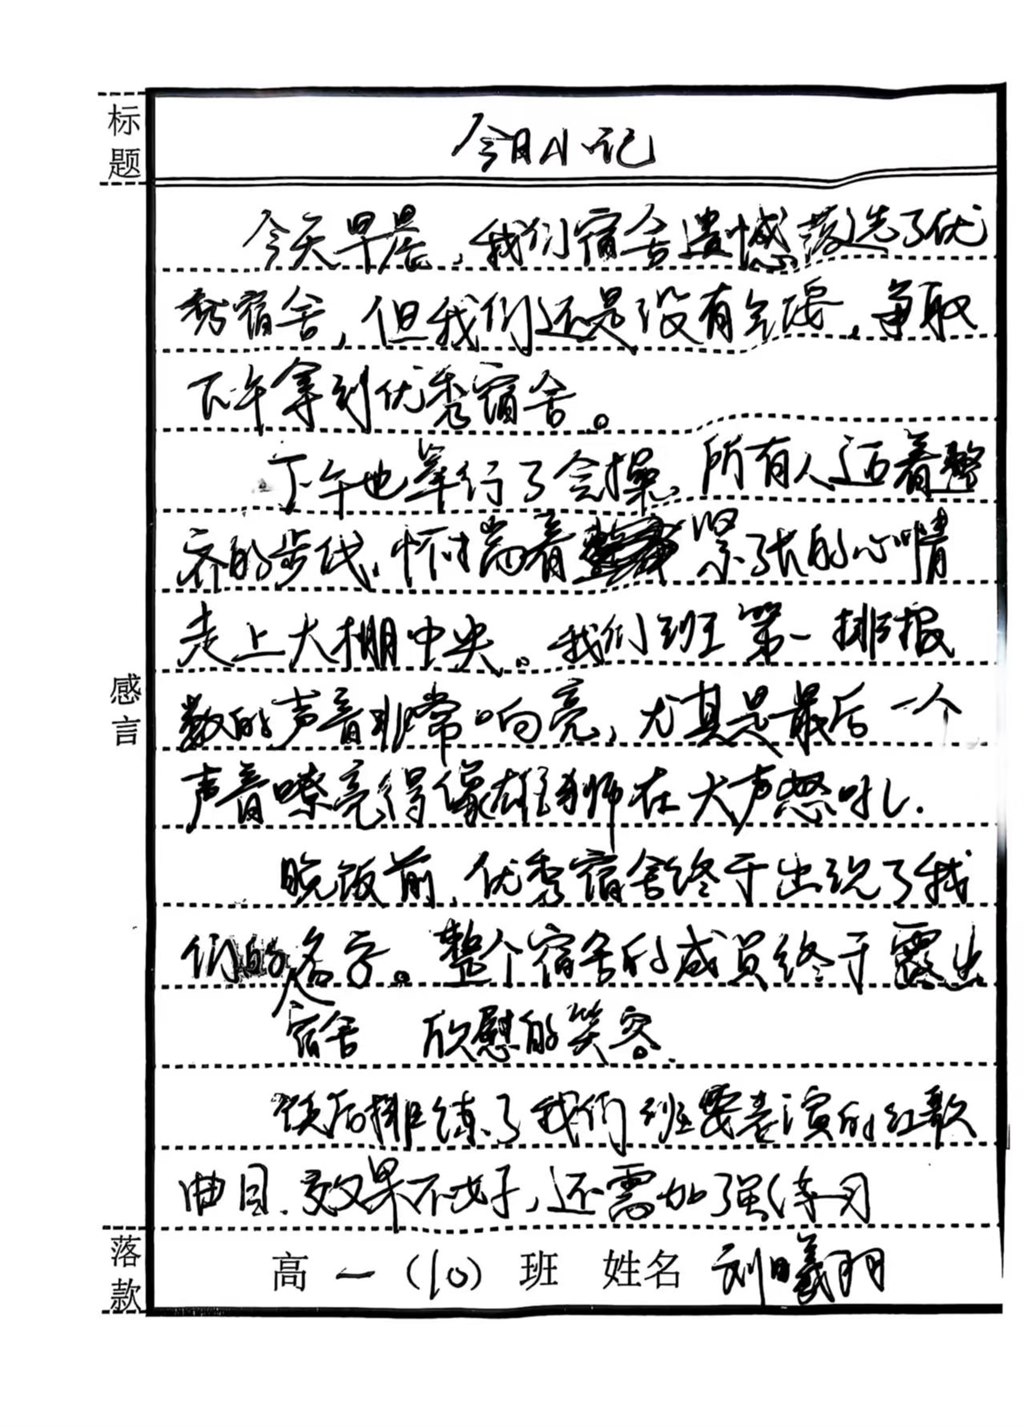 标题
今日小记
今天早晨，我们宿舍遗憾落选了优
秀宿舍，但我们还是没有气馁，争取
下午拿到优秀宿舍。
下午也举行了会操，所有人迈着整
齐的步伐，怀揣着紧张的心情
走上大棚中央。我们班第一排报
数的声音非常响亮，尤其是最后一个
声音嘹亮得像雄狮在大声怒吼.
感言
晚饭前，优秀宿舍终于出现了我
们的名字。整个宿舍的成员终于露出
宿舍 欣慰的笑容。
饭后排练了我们班要表演的红歌
曲目、效果不好，还需加强练习
落款
高一（10）班 姓名 刘曦羽